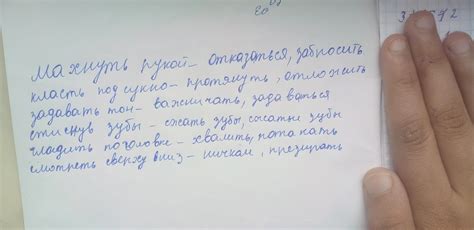 Махнуть рукой – отказаться, забросить
класть под сукно – протянуть, отложить
задавать тон – важничать, задаваться
стиснув зубы – сжать зубы, сжатые зубы
гладить по головке – хвалить, потакать
смотреть сверху вниз – ничком, презирать